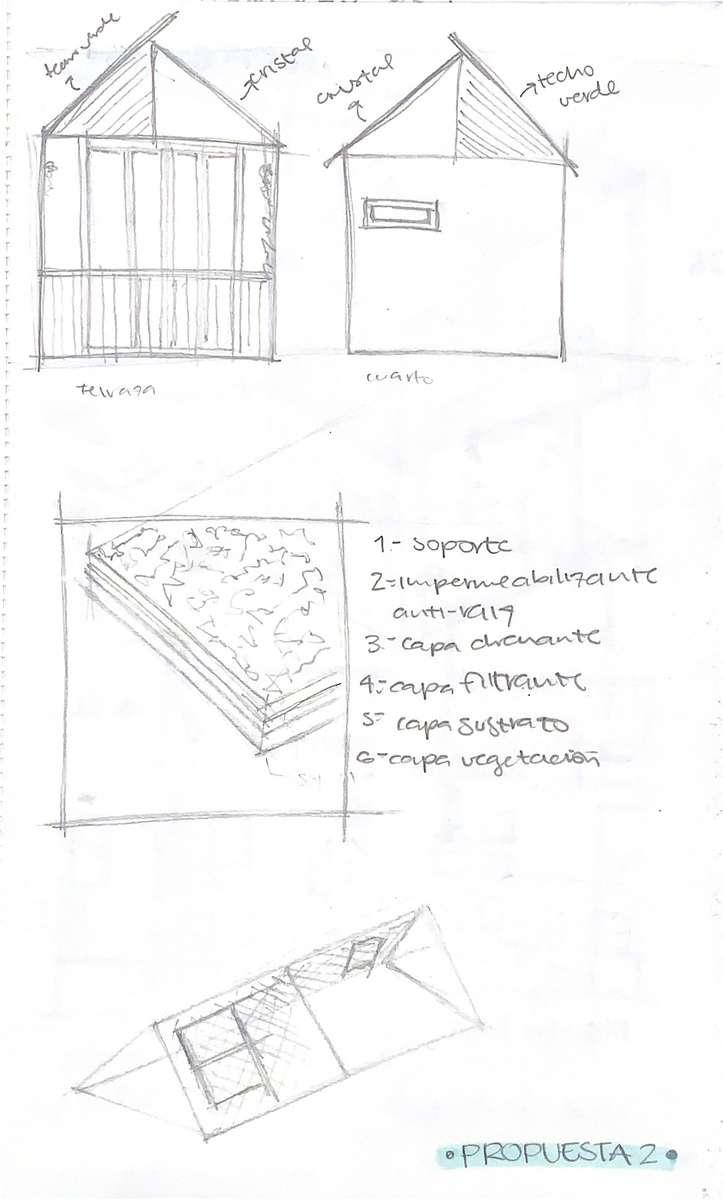 techo verde
cristal
cristal
techo
verde
terraza
cuarto
1.- soporte
2.- impermeabilizante
anti-raiz
3.- capa drenante
4.- capa filtrante
5- capa sustrato
6- capa vegetación
• PROPUESTA 2 •